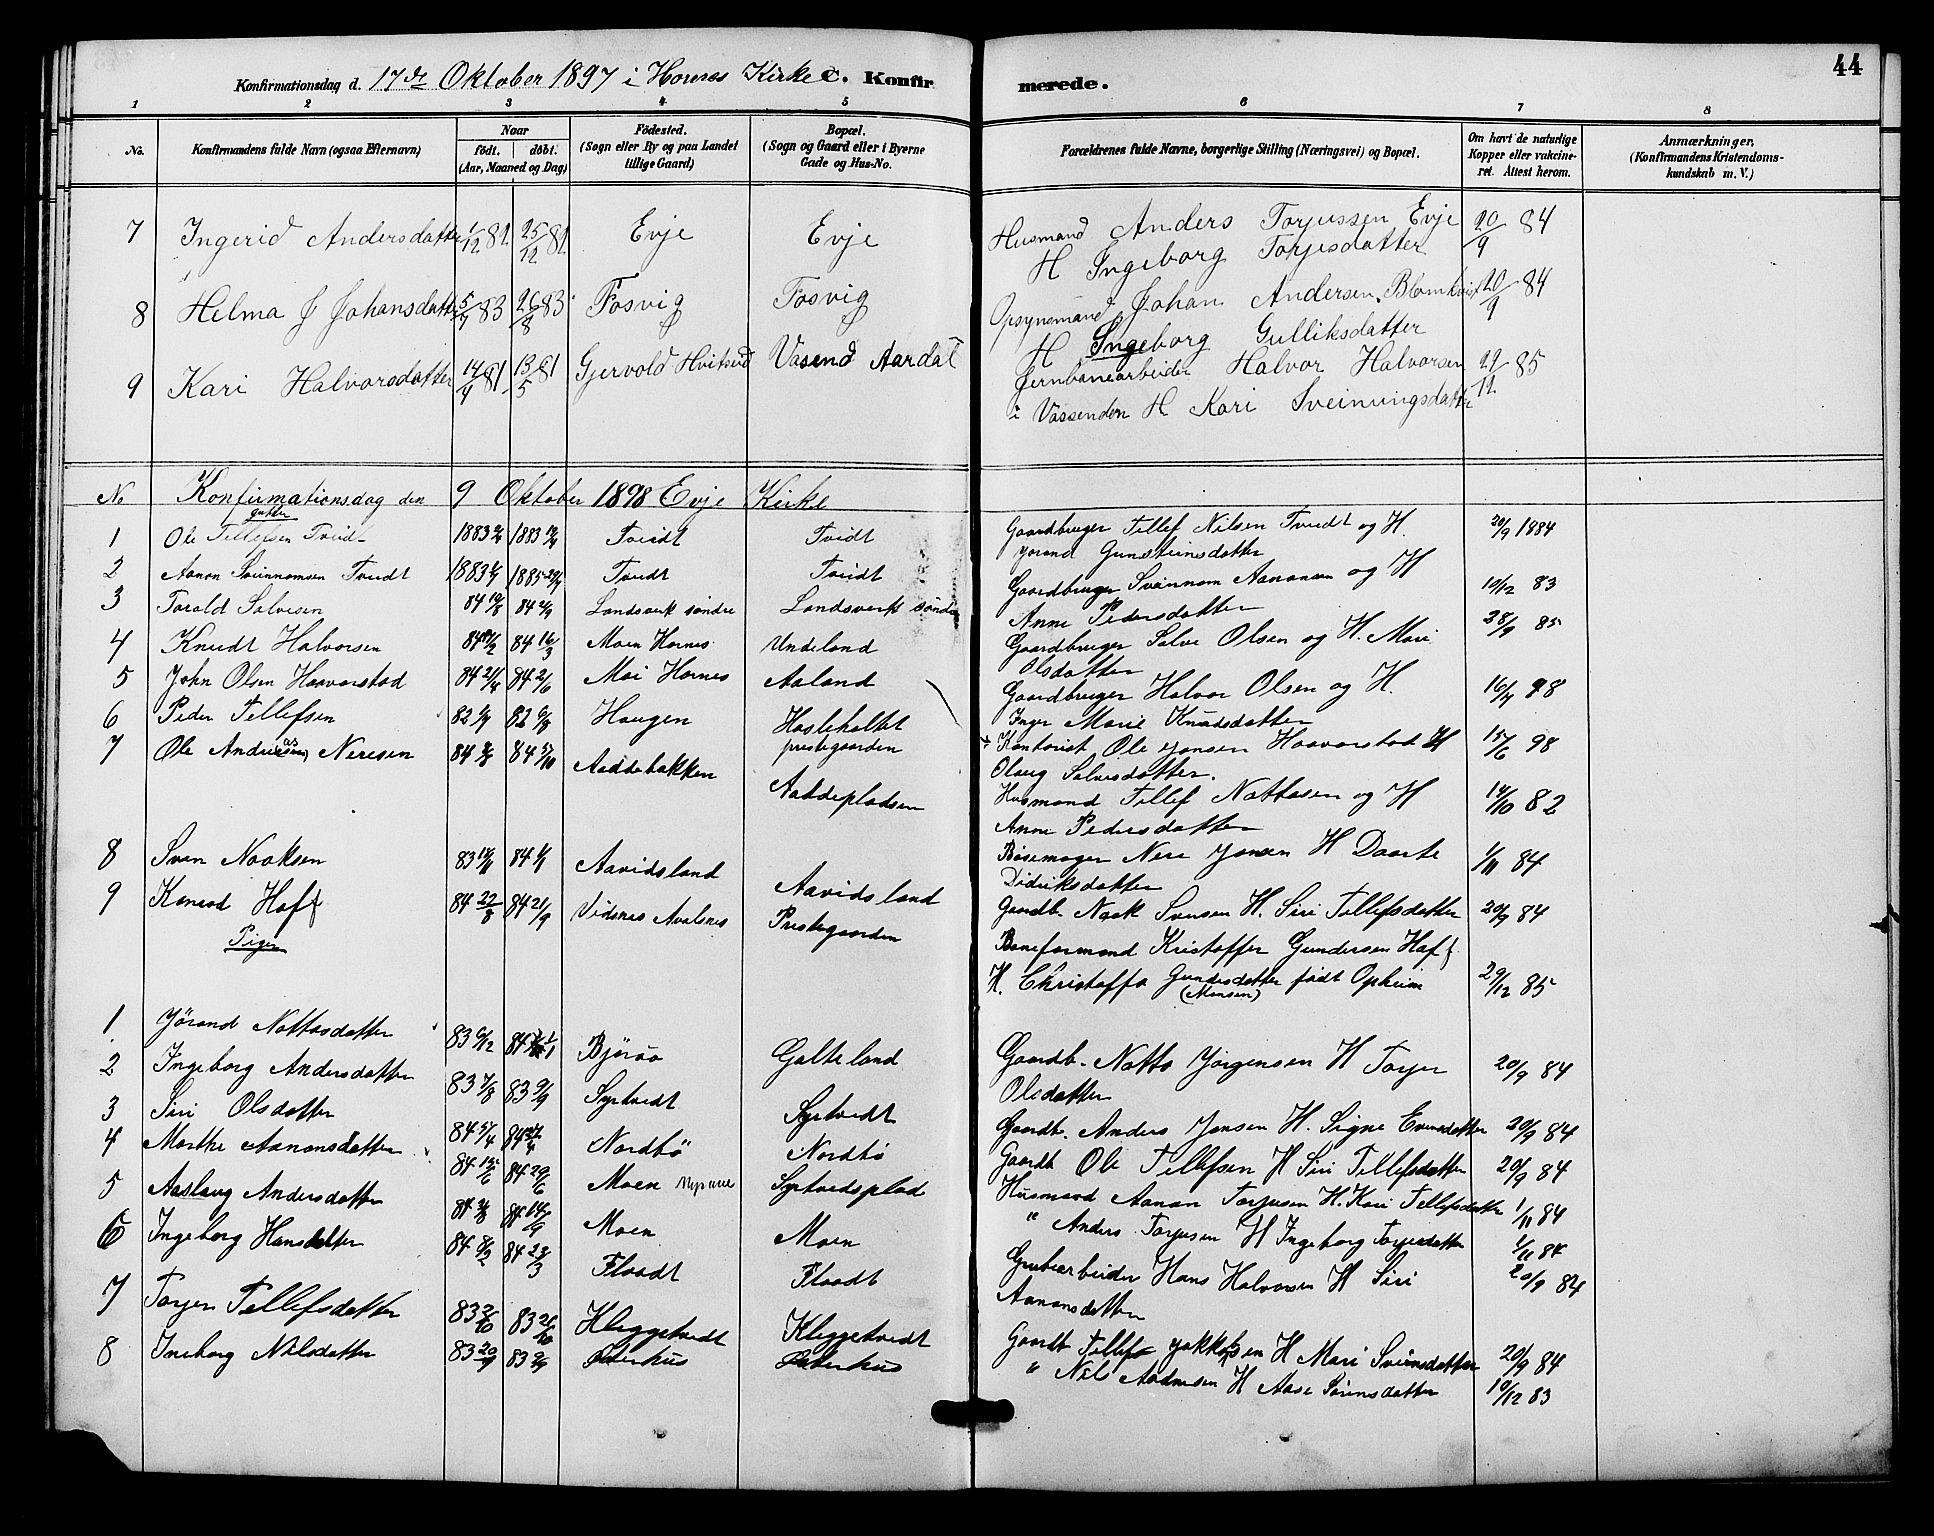 44
Konfirmationsdag d. 17de Oktober 1897 i Hornes Kirke C. Konfirmerede.
1 2 3 4 5 6 7 8
No. Konfirmandens fulde Navn (ogsaa Efternavn) Naar födt. döbt. (Aar, Maaned og Dag) Födested. (Sogn eller By og paa Landet tillige Gaard) Bopæl. (Sogn og Gaard eller i Byerne Gade og Hus-No. Forældrenes fulde Navne, borgerlige Stilling (Næringsvei) og Bopæl. Om havt de naturlige Kopper eller vakcineret. Attest herom. Anmærkninger, (Konfirmandens Kristendomskundskab m. V.)
7 Ingerid Andersdatter 1/12 81 25/12 81 Evje Evje Husmand Anders Torjussen Evje 20/9 84
H Ingeborg Torjusdatter
8 Helma J Johansdatter 5/7 83 26/8 83 Fosvig Fosvig Opsynsmand Johan Andersen Blomkvist 20/9 84
H Ingeborg Gulliksdatter
9 Kari Halvorsdatter 14/4 81 13/5 81 Gjervold Hvitsed Vasend Aardal Jernbanearbeider Halvor Halvorsen 29/12 85
i Vassenden H Kari Sveinungsdatter
No Konfirmationsdag den 9 Oktober 1898 Evje Kirke
gutter
1 Ole Tellefsen Tveidt 1883 1883 Tveidt Tveidt Gaardbruger Tellef Nilsen Tveidt og H. 20/9 1884
Jorand Gunsteinsdatter
2 Aanon Sveinnomsen Tveidt 1883 1883 Tveidt Tveidt Gaardbruger Sveinnom Aanonsen og H 10/12 83
Anne Pedersdatter
3 Torald Salvesen 84 84 Landsverk søndre Landsverk søndre Gaardbruger Salve Olsen og H. Mari 28/9 85
Olsdatter
4 Knudt Halvorsen 84 84 16/3 Moen Hornes Undeland Gaardbruger Halvor Olsen og H. 16/4 98
Inger Marie Knudsdatter
5 John Olsen Haavorstad 84 21/4 84 2/6 Moi Hornes Aaland Kontorist Ole Jonsen Haavorstad H 15/6 98
Olaug Salvesdatter.
6 Peder Tellefsen 82 82 Haugen Hasleholtet prestegaarden Husmand Tellef Nattasen og H 14/10 82
Anne Pedersdatter
7 Ole Andreas Neresen 84 84 5/10 Aaddebakken Aaddepladsen Bøsemager Nere Jonsen H Daarte 1/11 84
Didriksdatter
8 Sven Naaksen 83 84 Aavidsland Aavidsland Gaardb. Naak Svensen H. Siri Tellefsdatter 20/9 84
9 Konrad Haff 84 22/8 84 21/9 Vidsnes Avalsnes Prestegaarden Baneformand Kristoffer Gundersen Haff
H. Christoffa Gundersdatter født Opheim 29/12 85
(Monsen)
Piger
1 Jørand Nattasdatter 83 6/12 84 Bjøraa Galteland Gaardb. Natta Jørgensen H Torjer 20/9 84
Olsdatter
2 Ingeborg Andersdatter 83 7/8 83 9/9 Syrtvedt Syrtvedt Gaardb. Anders Jonsen H. Signe Evensdatter 20/9 84
3 Siri Olsdatter 84 5/4 84 Nordbø Nordbø Gaardb Ole Tellefsen H Siri Tellefsdatter 20/9 84
4 Marthe Aanonsdatter 84 84 29/6 Moen Syrtvedsplad Husmand Aanon Torjusen H. Kari Tellefsdatter 1/11 84
5 Aaslaug Andersdatter 84 84 14/9 Moen Moen " Anders Torjusen H Ingeborg Torjusdatter 1/11 84
6 Ingeborg Hansdatter 84 8/2 84 23/3 Flaadt Flaadt Grubearbeider Hans Halvorsen H Siri 20/9 84
Aanonsdatter
7 Torjer Tellefsdatter 83 83 Kleggetvedt Kleggetvedt Gaardb Tellef Jokkobsen H Mari Sveinsdatter 20/9 84
8 Ineborg Nilsdatter 83 83 Oterhus Oterhus " Nils Aadnesen H Aase Sørensdatter 10/12 83